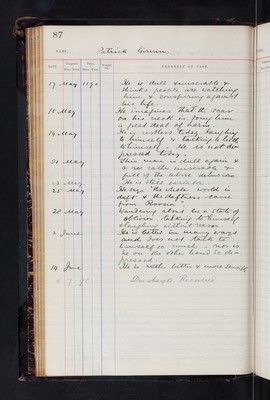 87
NAME, Patrick
DATE. PROGRESS OF CASE.
17 May 1890 He is dull & miserable &
thinks people are watching
him & conspiring against
his life.
18 May He imagines that the scar
on his neck is doing him
a great deal of harm
19 May He is restless today laughing
to himself & talking a little
to himself. He is not de-
pressed today.
21 May This man is dull again &
is rather miserable &
full of the above delusions
23 May He is still variable.
25 May He says "the whole world is
daft & the daftness came
from Russia".
28 May Wandering about in a state of
oblivion talking to himself
& laughing without reason
2 June He is better in many ways
and does not talk to
himself so much - nor is
he on the other hand so de-
pressed.
14 June He is rather better & more sensible
Discharged Recovered.